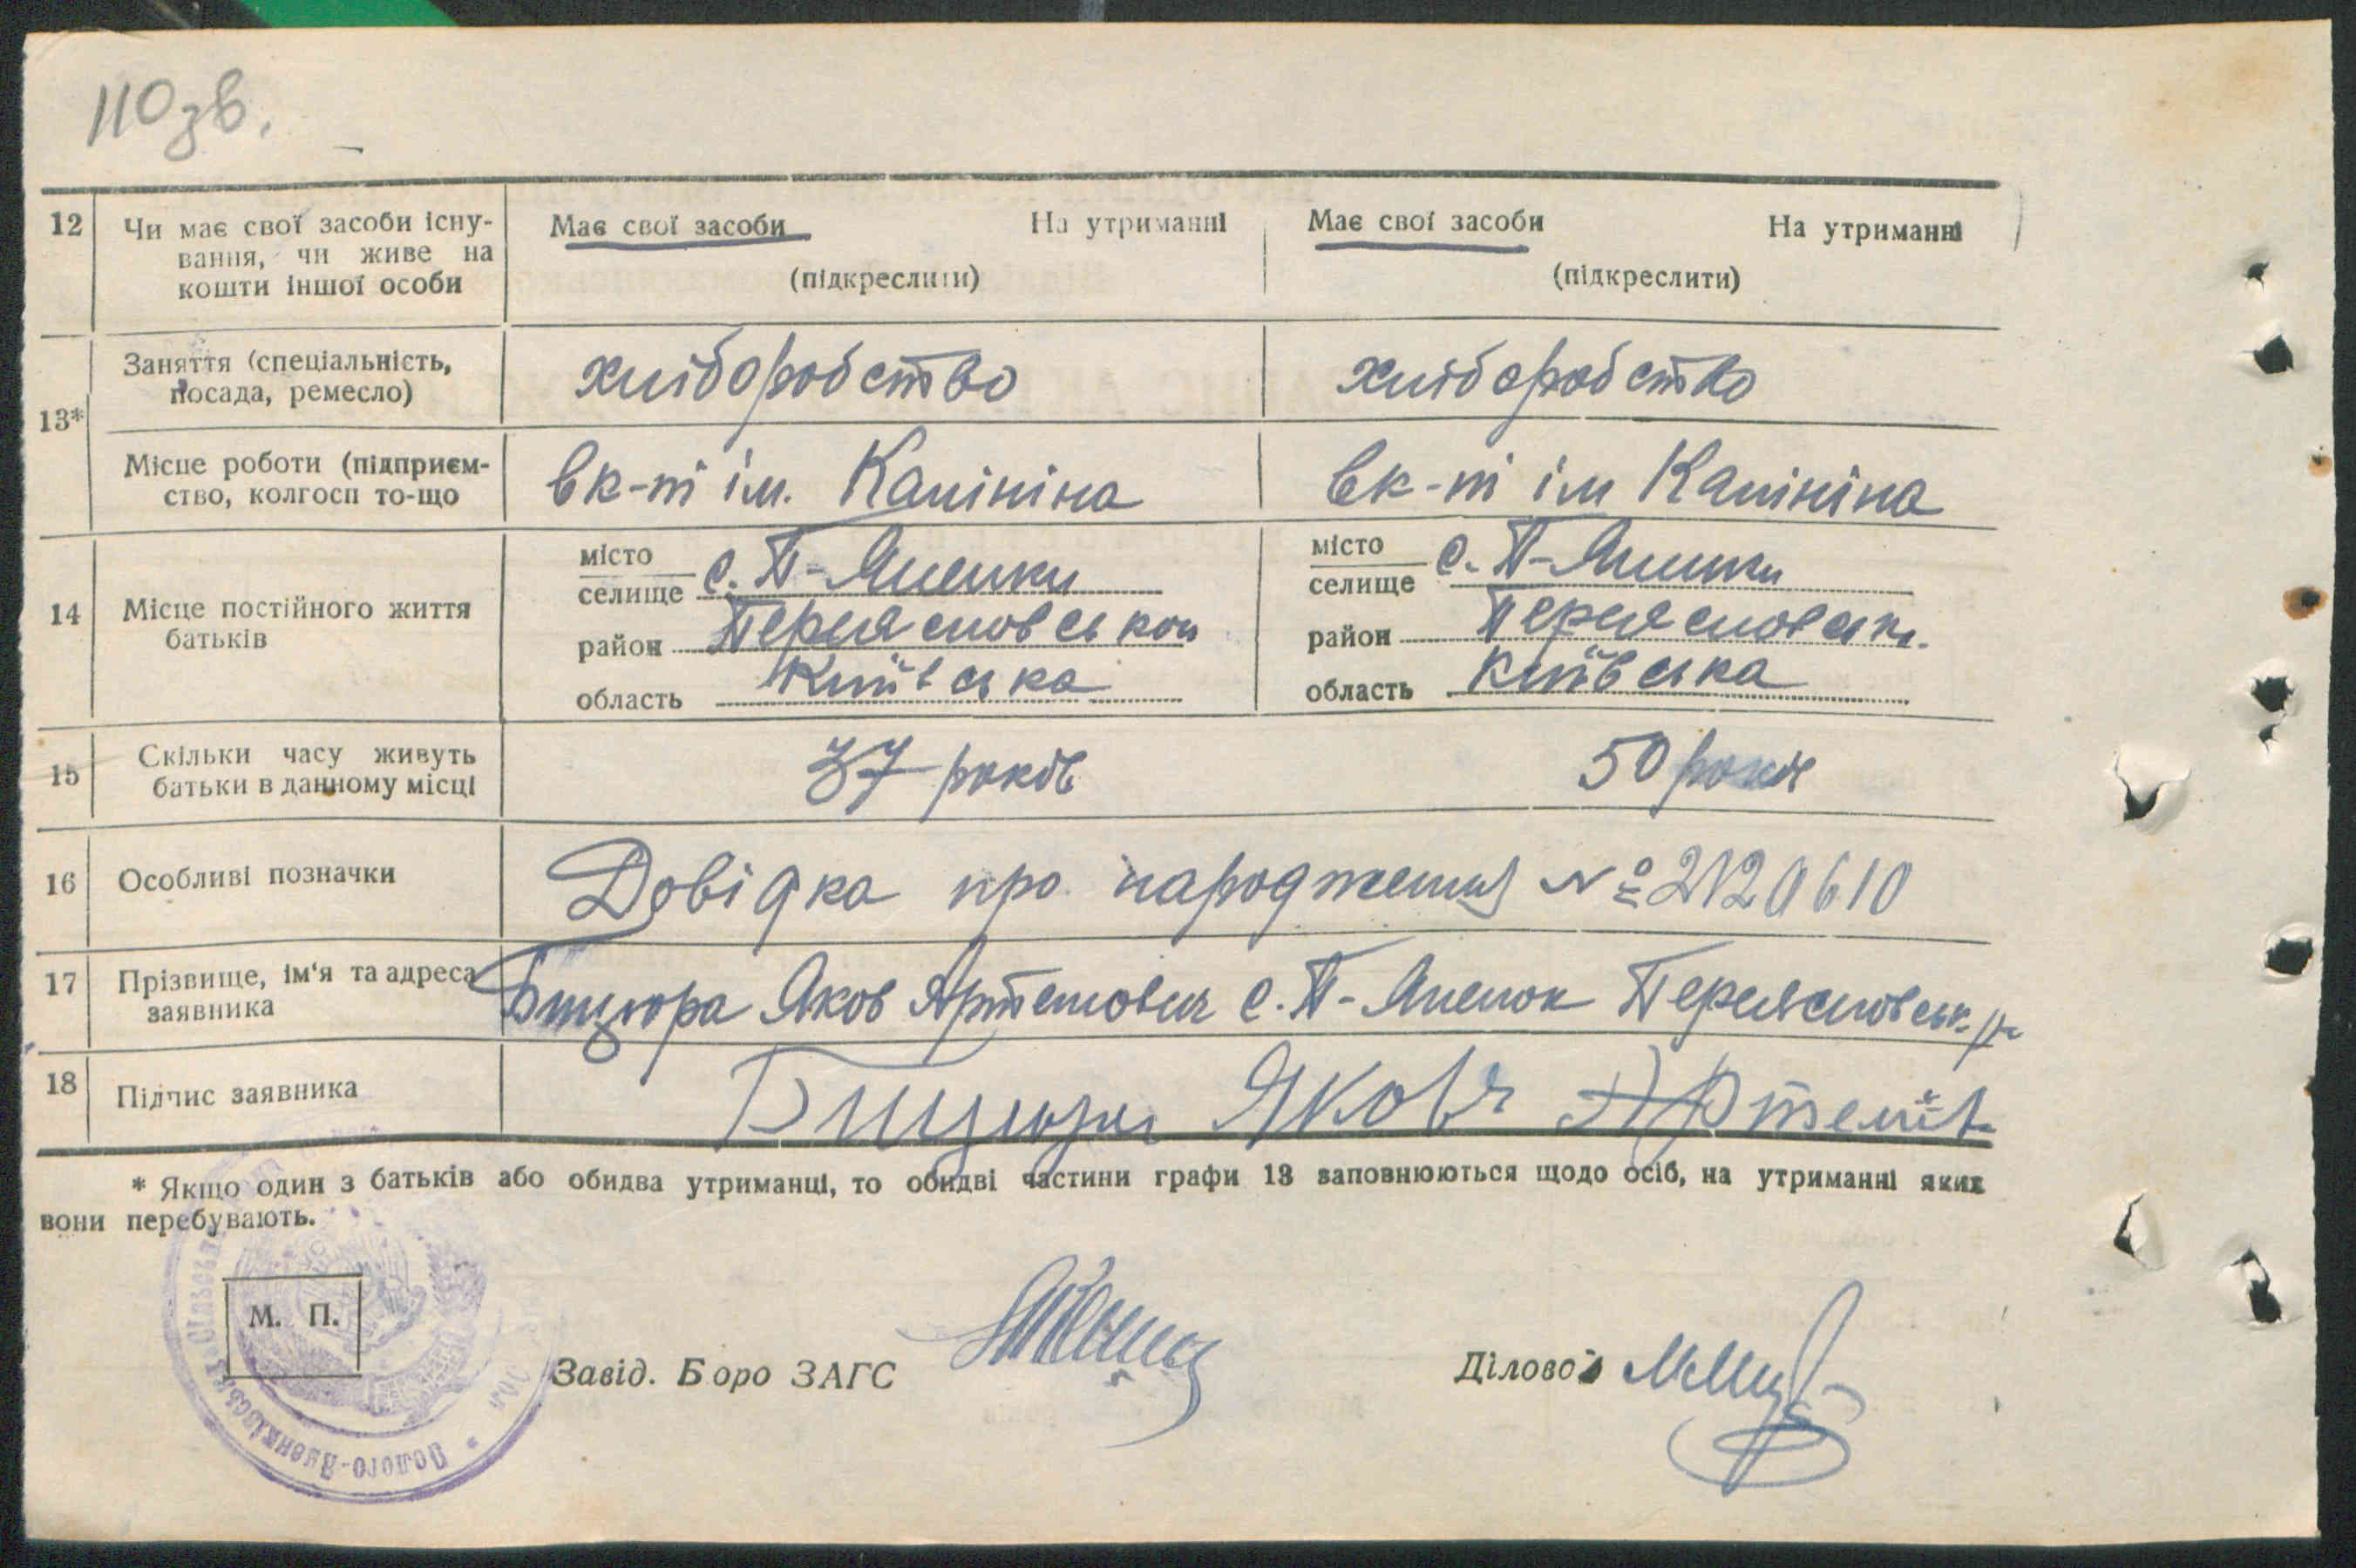 110 зв.
12 Чи має свої засоби існу-
вання, чи живе на
кошти іншої особи
Має свої засоби На утриманні
(підкреслити)
Має свої засоби На утриманні
(підкреслити)
13*
Заняття (спеціальність,
посада, ремесло)
хліборобство
хліборобство
Місце роботи (підприєм-
ство, колгосп то-що
вк-ті ім. Калініна
вк-ті ім Калініна
14 Місце постійного життя
батьків
місто
селище с. П-Яненки
район Переяславськ
область Київська
місто
селище с. П-Яненки
район Переяславськ.
область Київська
15 Скільки часу живуть
батьки в данному місці
37 років
50 років
16 Особливі позначки
Довідка про народження № 2120610
17 Прізвище, ім'я та адреса
заявника
Бицюра Яков Артемович с. П-Яненок Переяславськ. р-
18 Підпис заявника
Бицюра Яков Артемів
* Якщо один з батьків або обидва утриманці, то обидві частини графи 13 заповнюються щодо осіб, на утриманні яких
вони перебувають.
М. П.
Завід. Боро ЗАГС
Діловод